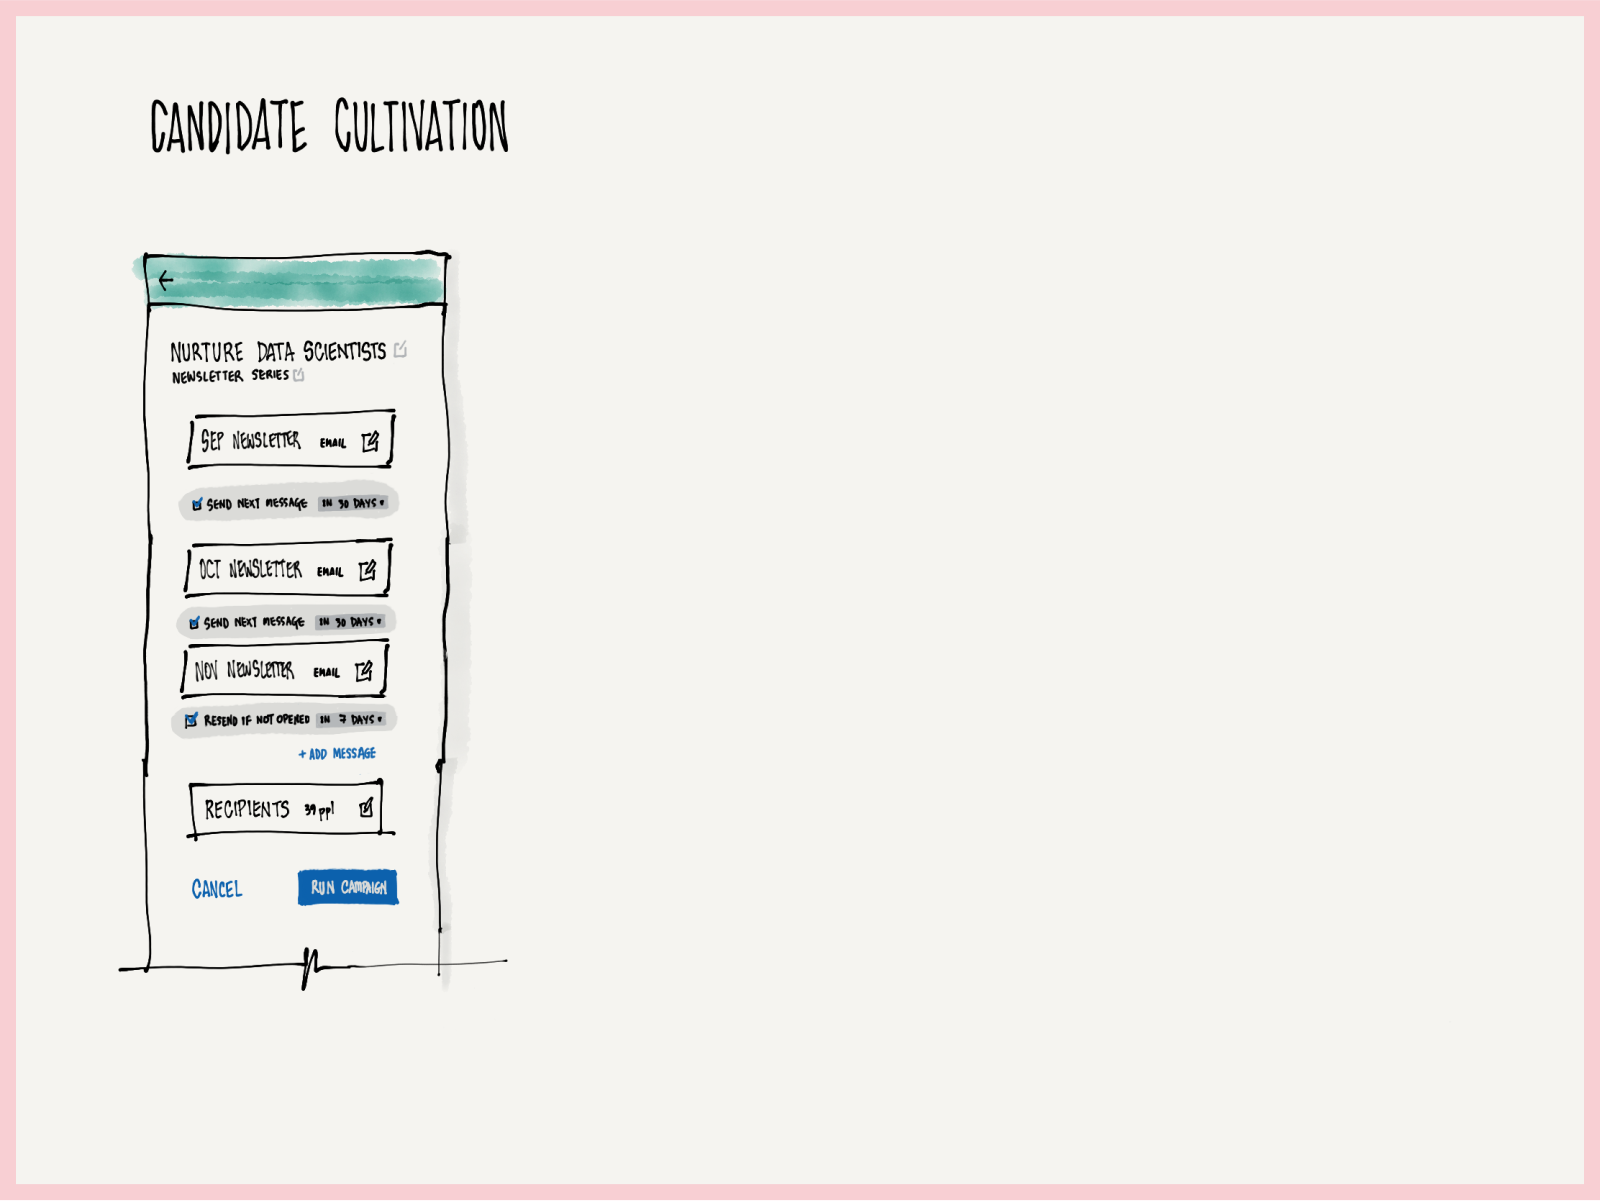 CANDIDATE CULTIVATION
NURTURE DATA SCIENTISTS
NEWSLETTER SERIES
SEP NEWSLETTER EMAIL
SEND NEXT MESSAGE IN 30 DAYS
OCT NEWSLETTER EMAIL
SEND NEXT MESSAGE IN 30 DAYS
NOV NEWSLETTER EMAIL
RESEND IF NOT OPENED IN 7 DAYS
+ ADD MESSAGE
RECIPIENTS 39 ppl
CANCEL RUN CAMPAIGN